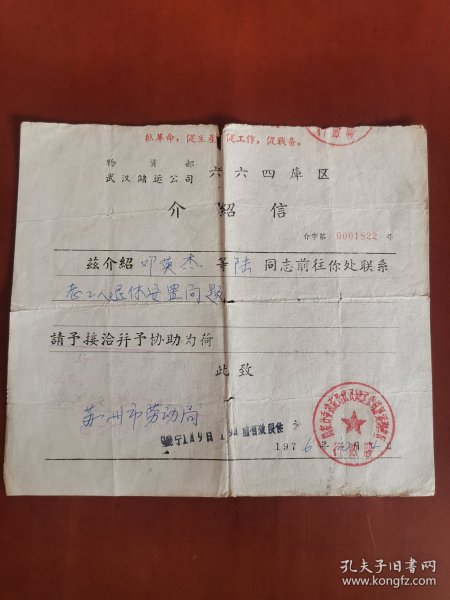 抓革命，促生产，促工作，促战备。
物资部
武汉储运公司 六六四库区
介绍信
介字第 0001822 号
兹介紹 邓英杰 等 陆 同志前往你处联系
老工人退休安置问题
請予接洽幷予协助为荷
此致
苏州市劳动局
1976年10月
孔夫子旧书网
www.kongfz.com